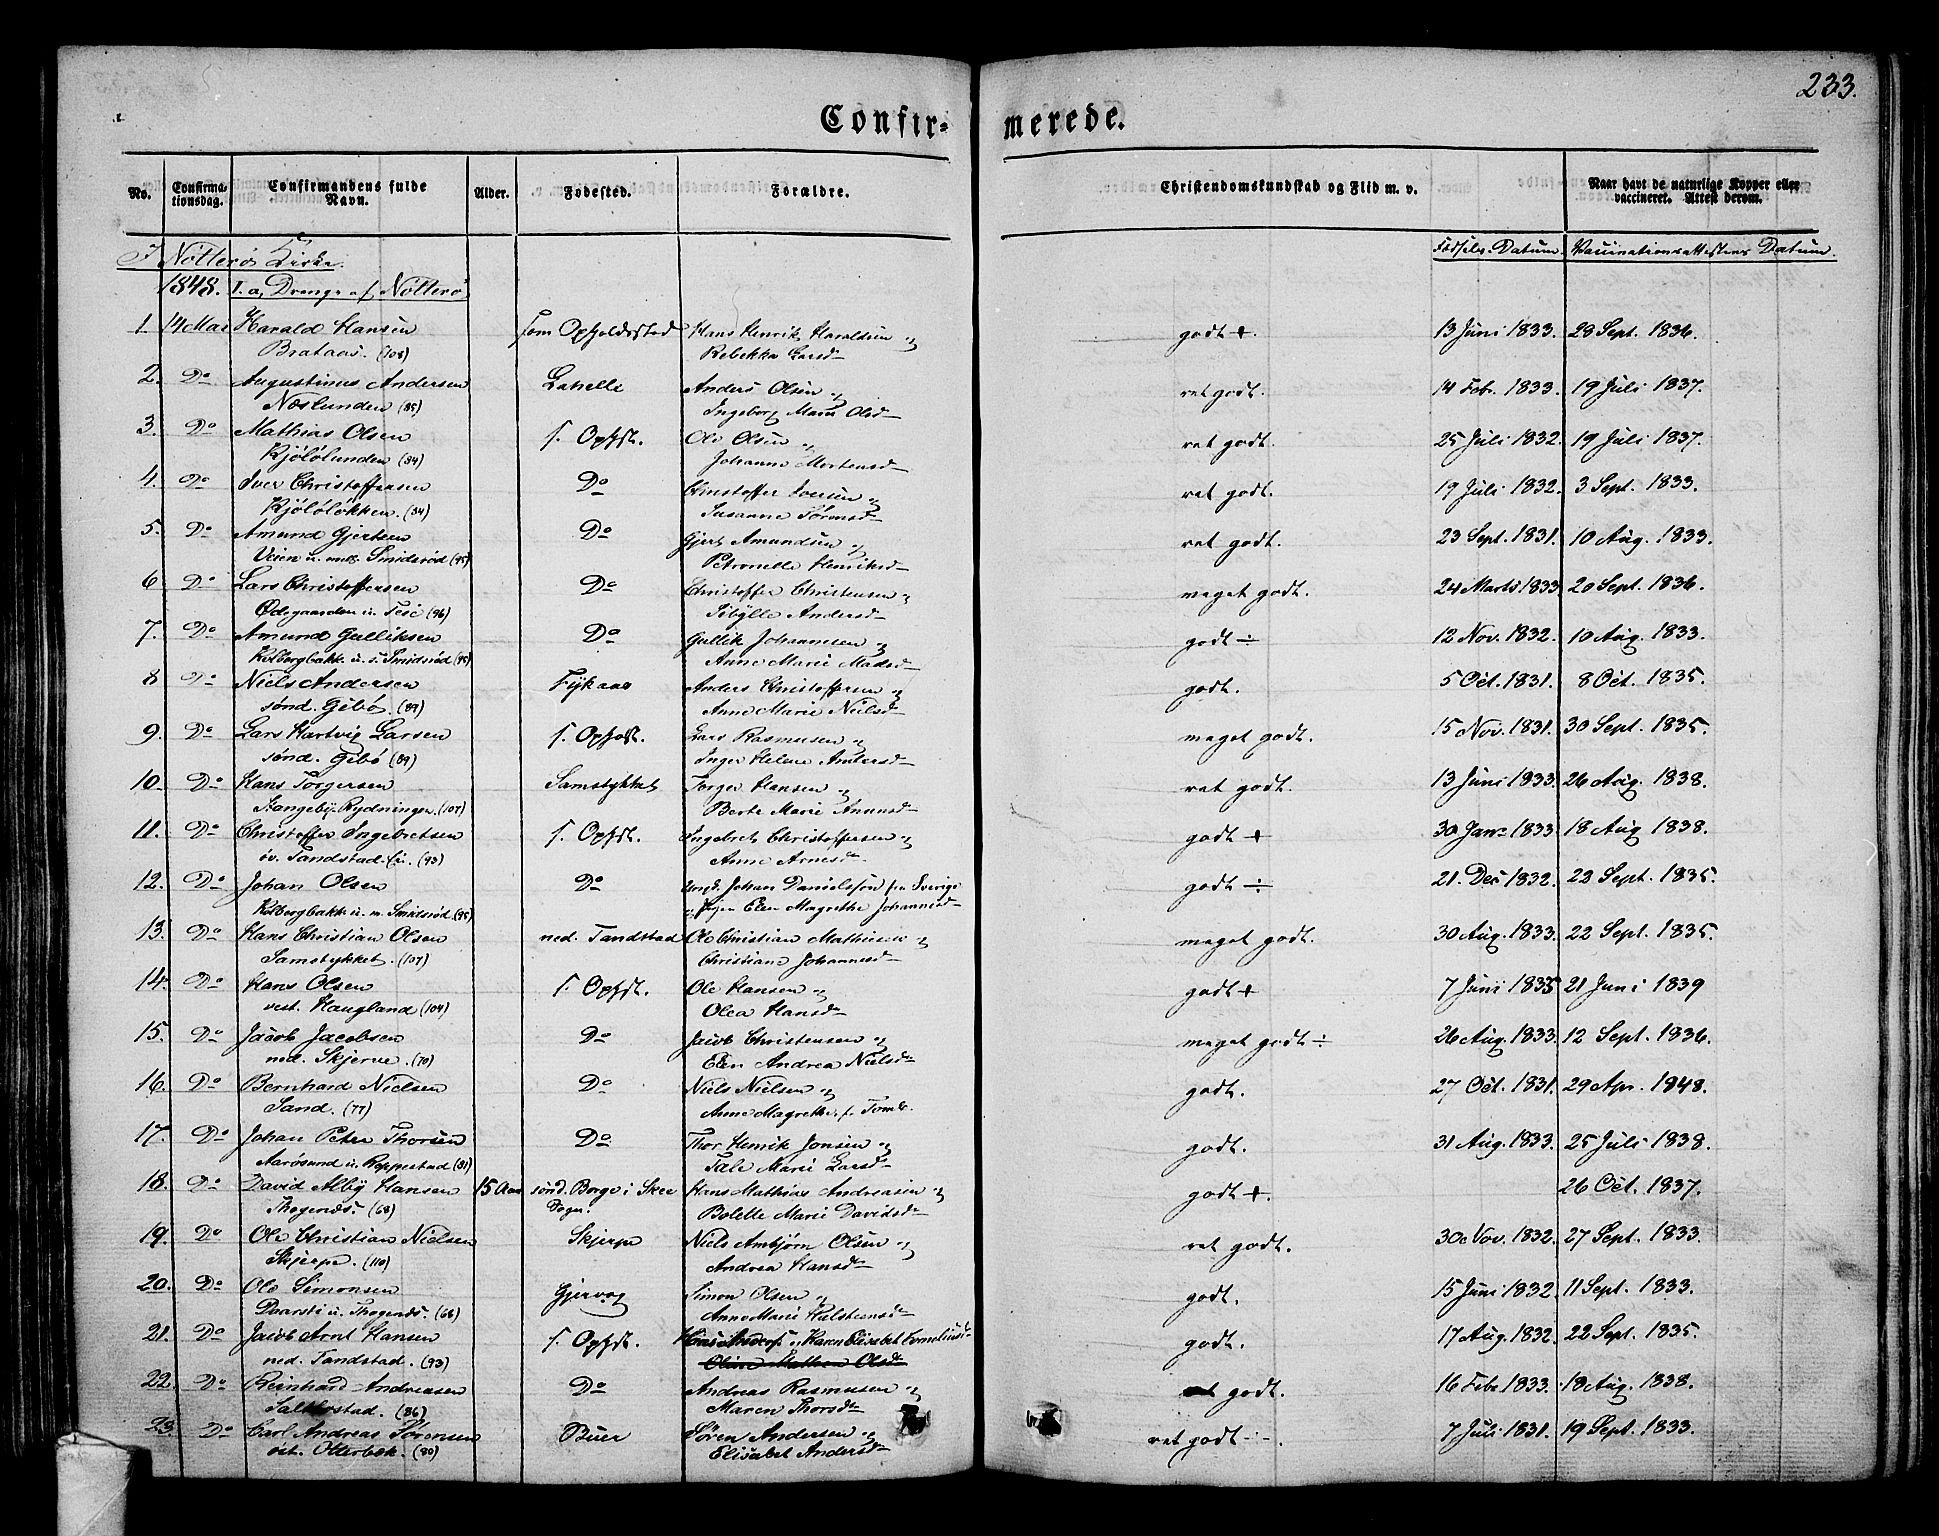 233.
Confir- merede.
No. Confirmationsdag. Confirmandens fulde Navn. Alder. Fødested. Forældre. Christendomskundskab og Flid m. v. Naar havt de naturlige Kopper eller vaccineret. Attest derom.
I Nötterö Kirke. Fødsels-Datum. Vaccinationsattestens Datum.
1848. I. a, Drenge af Nötterö
1. 14 Mai Harald Hansen som Opholdssted Hans Henrik Haraldsen og godt +. 13 Juni 1833. 28 Sept. 1836.
Brataas. (108) Rebekka Larsd
2. Do Augustinus Andersen Lahelle Anders Olsen og ret godt. 14 Febr. 1833. 19 Juli 1837.
Næslunden (85) Ingeborg Marie Olsd
3. Do Mathias Olsen s. Ophst. Ole Olsen og ret godt. 25 Juli 1832. 19 Juli 1837.
Kjölölunden (84) Johanne Mortensd
4. Do Iver Christoffersen Do Christoffer Iversen og ret godt. 19 Juli 1832. 3 Sept. 1833.
Kjölölökken. (84) Susanne Sörensd
5. Do Amund Gjertsen Do Gjert Amundsen og ret godt. 23 Sept. 1831. 10 Aug. 1833.
Veien u. mel. Smidsröd (95) Petronelle Henriksd
6 Do Lars Christoffersen Do Christoffer Christensen og meget godt. 24 Marts 1833 20 Sept. 1836.
Ödegaarden u. Teie (96) Sibylle Andersd
7. Do Amund Gulliksen Do Gullik Johannesen og godt ÷ 12 Nov. 1832. 10 Aug. 1833.
Kolbergbakk. u. s. Smidsröd (95) Anne Marie Madsd
8 Do Niels Andersen Fykaas Anders Christoffersen og godt. 5 Oct. 1831. 8 Oct. 1835.
sönd. Gibö. (89) Anne Marie Nielsd
9. Do Lars Hartvig Larsen s. Ophost. Lars Rasmusen og meget godt. 15 Nov. 1831. 30 Sept. 1835.
sönd. Gibö (89) Inger Helene Andersd
10. Do Hans Torgersen Samstykket Torger Hansen og ret godt. 13 Juni 1833 26 Aug. 1838.
Stangeby Rydningen (107) Berte Marie Amunsd
11. Do Christoffer Ingebretsen s. Ophst. Ingebret Christoffersen og godt + 30 Janr 1833 18 Aug 1838.
öv. Tandstad. (93) Anne Arnesd
12. Do Johan Olsen Do Johan Danielssön fra Sverige godt ÷ 21. Dec 1832. 22 Sept. 1835.
Kolbergbakk u. m. Smidsröd. (95) Elen Magrethe Johannesd
13. Do Hans Christian Olsen ned. Tandstad Ole Christian Mathisen og meget godt. 30 Aug. 1833. 22 Sept. 1835.
Samstykket. (107) Christiane Johannesd
14. Do Hans Olsen s. Ophst. Ole Hansen og godt + 7 Juni 1835 21 Juni 1839
vest. Haugland (104) Olea Hansd
15. Do Jacob Jacobsen Do Jacob Christensen og meget godt ÷ 26 Aug. 1833. 12 Sept. 1836.
ned. Skjerve. (70) Elen Andrea Nielsd
16. Do Bernhard Nielsen Do Niels Nielsen og godt. 27 Oct. 1831. 29 Apr. 1848.
Sand. (77) Anne Magrethe f. Tomb.
17. Do Johan Peter Thorsen Do Thor Henrik Jonsen og godt. 31 Aug. 1833. 25 Juli 1838.
Aarösund u. Roppestad (81) Tale Marie Larsd
18. Do David Alby Hansen 15 Aar sönd. Borge i Skee Hans Mathias Andreasen og godt +. 26 Oct. 1837.
Thogenæs. (68) Sogn. Bolette Marie Davidsd
19. Do Ole Christian Nielsen Skjerpe Niels Ambjörn Olsen og ret godt. 30 Nov. 1832. 27 Sept. 1833.
Skjerpe. (110) Andrea Hansd
20. Do Ole Simonsen Gjervog Simon Olsen og godt. 15 Juni 1832. 11 Sept. 1833.
u. Thogenæs. (68) Anne Marie Halstensd
21. Do Jacob Arnt Hansen s. Ophst. Hans Anders. og Karen Elisabet Corneliusd godt. 17 Aug. 1832. 22 Sept. 1835.
ned. Tandstad. (93) Oline Mathea Olsd
22. Do Reinhard Andreasen Do Andreas Rasmusen og godt. 16 Febr 1833. 18 Aug. 1838.
Salterstad. (86) Maren Thorsd
23. Do Carl Andreas Sörensen Buer Sören Andersen og ret godt ÷. 7 Juli 1831. 19 Sept. 1833.
öst. Otterbek. (80) Elisabet Andersd